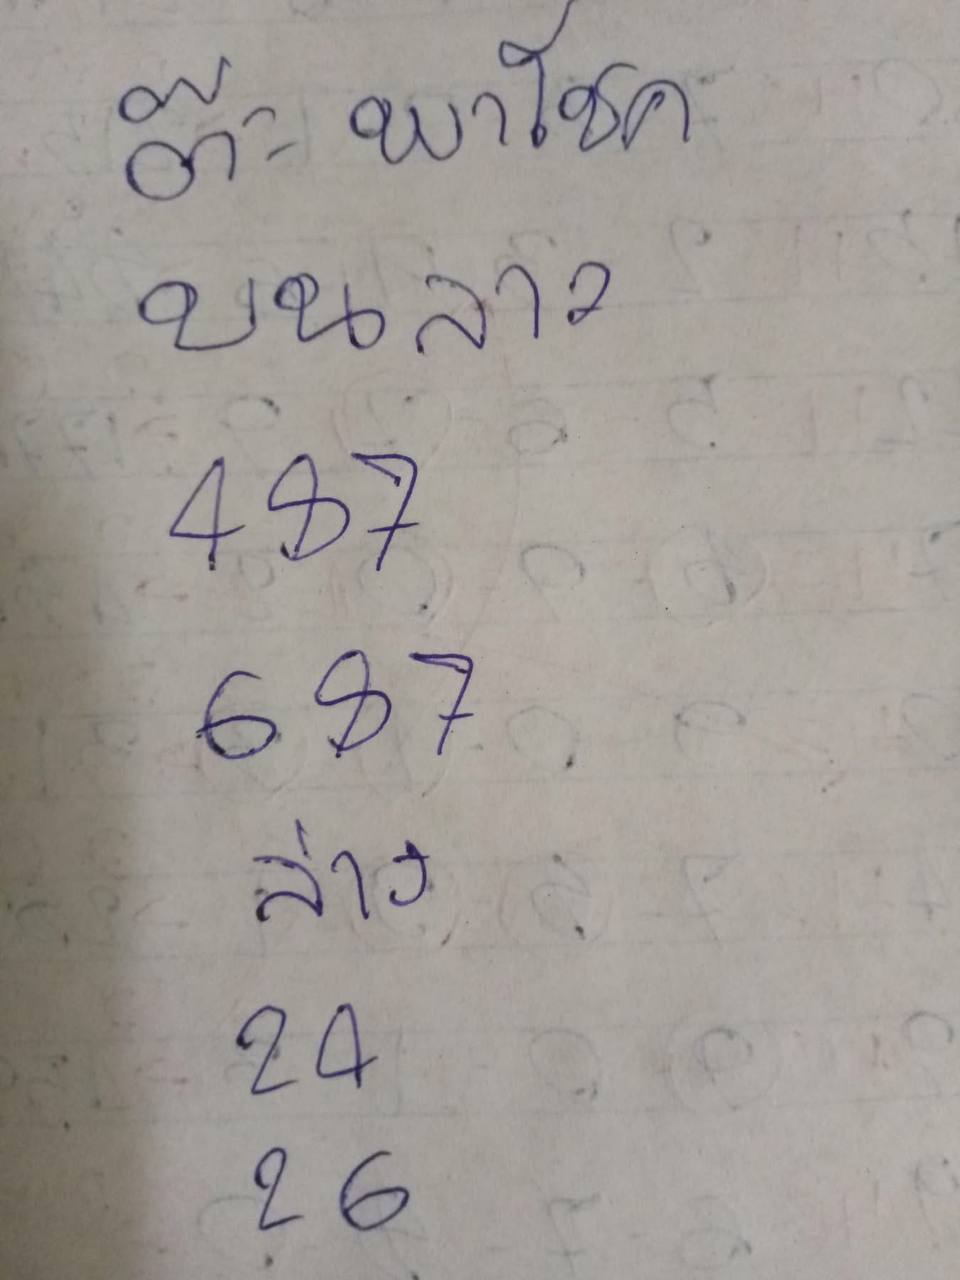 ต๊ะ พาโชค
บนลาว
487
687
ล่าง
24
26